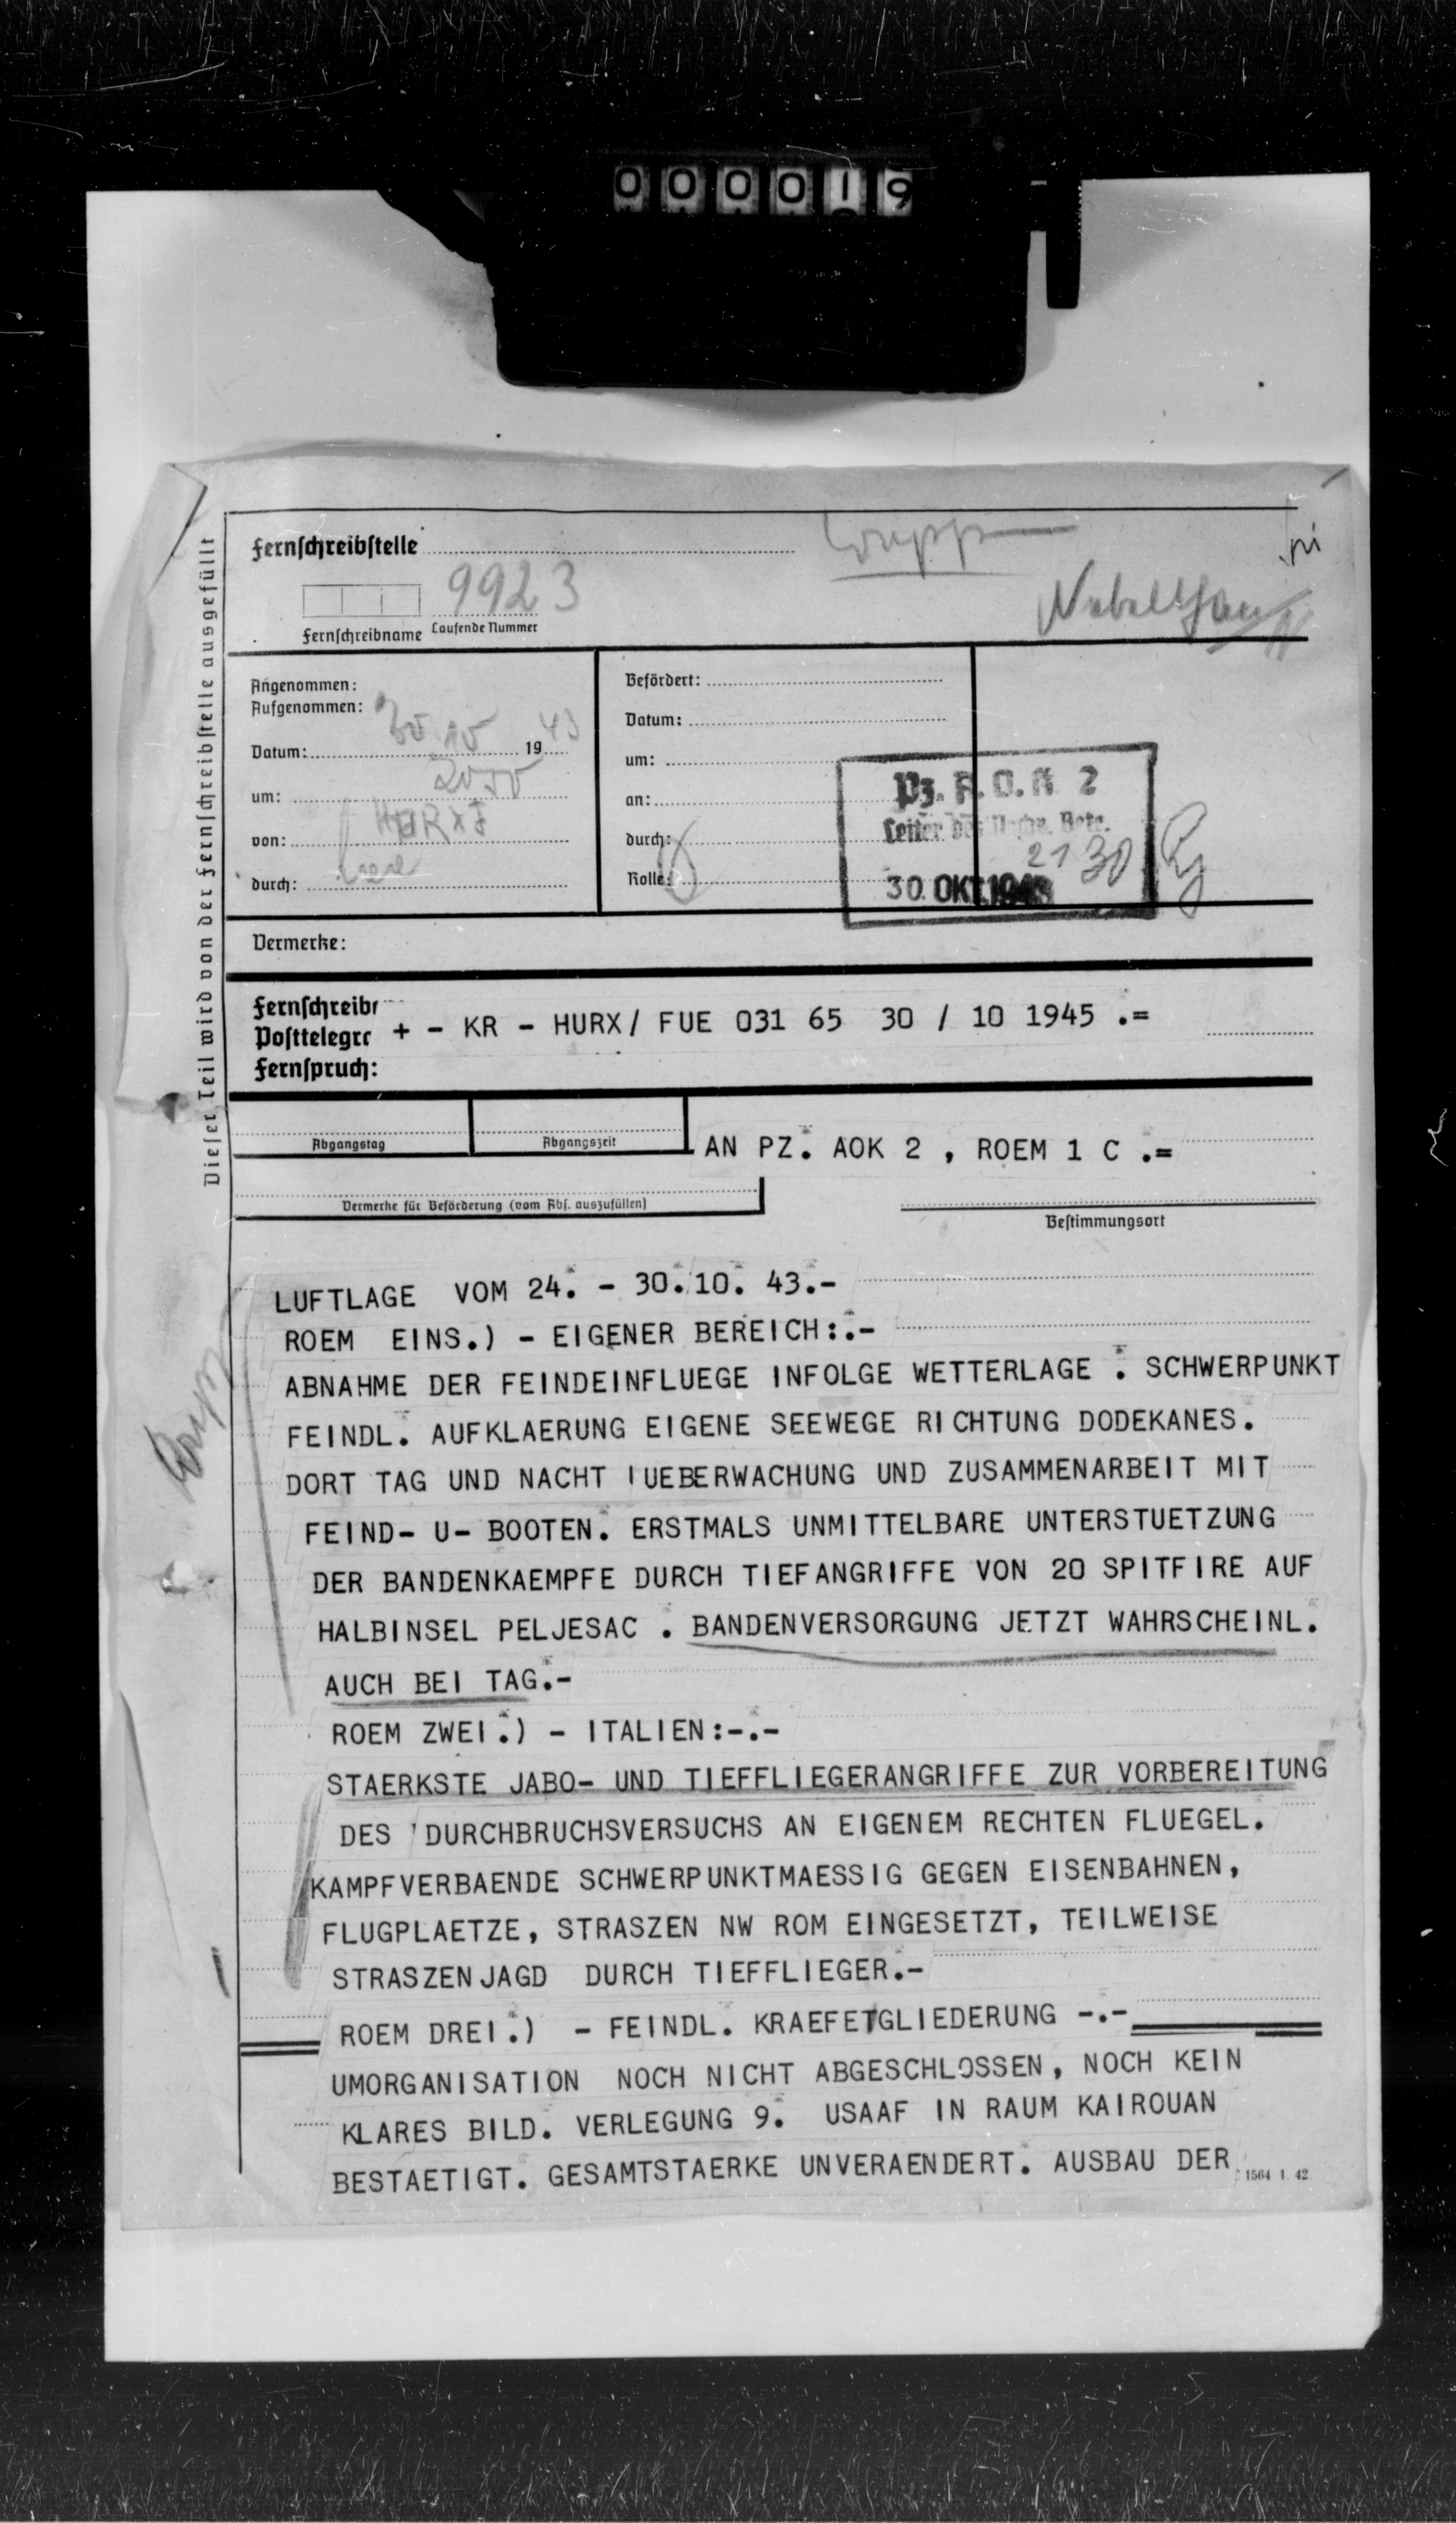 000019
Dieser Teil wird von der Fernschreibstelle ausgefüllt
Fernschreibstelle
9923
Fernschreibname Laufende Nummer
Angenommen:
Aufgenommen:
Datum: 30.10 1943
um:
von:
durch:
Befördert:
Datum:
um:
an:
durch:
Rolle:
Pz. A.O.K 2
Leiter des Nachr. Betr.
21 30
30. OKT. 1943
Vermerke:
Fernschreibr
Posttelegr
Fernspruch:
+ - KR - HURX/ FUE 031 65 30 / 10 1945 .=
Abgangstag
Abgangszeit
AN PZ. AOK 2 , ROEM 1 C .=
Vermerke für Beförderung (vom Abs. auszufüllen)
Bestimmungsort
LUFTLAGE VOM 24. - 30.10. 43.-
ROEM EINS.) - EIGENER BEREICH:.-
ABNAHME DER FEINDEINFLUEGE INFOLGE WETTERLAGE . SCHWERPUNKT
FEINDL. AUFKLAERUNG EIGENE SEEWEGE RICHTUNG DODEKANES.
DORT TAG UND NACHT UEBERWACHUNG UND ZUSAMMENARBEIT MIT
FEIND- U- BOOTEN. ERSTMALS UNMITTELBARE UNTERSTUETZUNG
DER BANDENKAEMPFE DURCH TIEFANGRIFFE VON 20 SPITFIRE AUF
HALBINSEL PELJESAC . BANDENVERSORGUNG JETZT WAHRSCHEINL.
AUCH BEI TAG.-
ROEM ZWEI.) - ITALIEN:-.-
STAERKSTE JABO- UND TIEFFLIEGERANGRIFFE ZUR VORBEREITUNG
DES DURCHBRUCHSVERSUCHS AN EIGENEM RECHTEN FLUEGEL.
KAMPFVERBAENDE SCHWERPUNKTMAESSIG GEGEN EISENBAHNEN,
FLUGPLAETZE, STRASZEN NW ROM EINGESETZT, TEILWEISE
STRASZENJAGD DURCH TIEFFLIEGER.-
ROEM DREI.) - FEINDL. KRAEFETGLIEDERUNG -.-
UMORGANISATION NOCH NICHT ABGESCHLOSSEN, NOCH KEIN
KLARES BILD. VERLEGUNG 9. USAAF IN RAUM KAIROUAN
BESTAETIGT. GESAMTSTAERKE UNVERAENDERT. AUSBAU DER
1564 1. 42